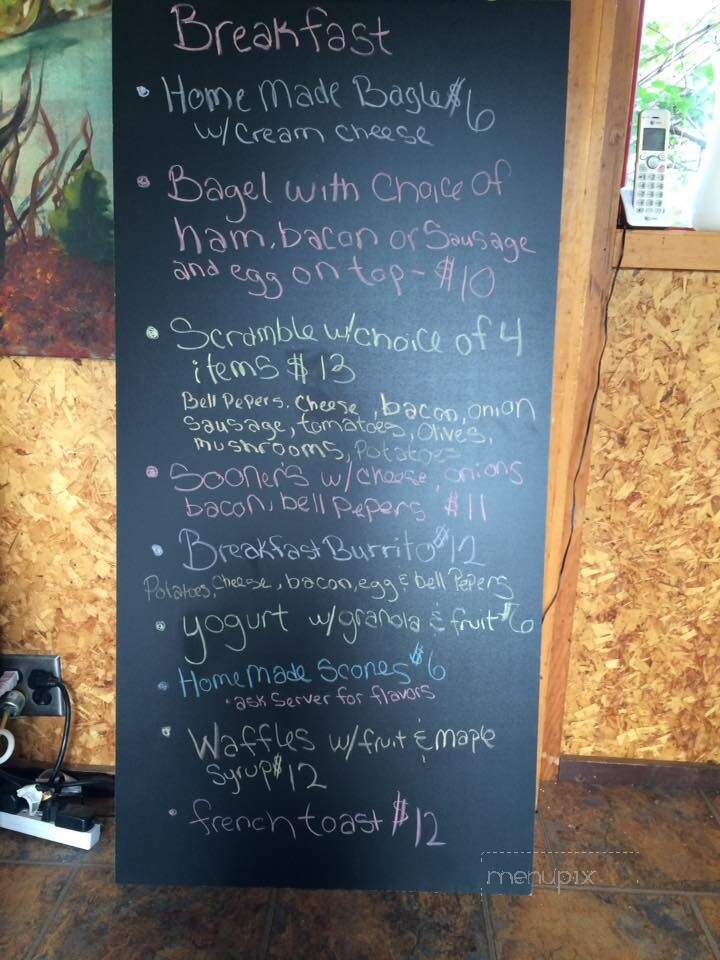 Breakfast
• Home Made Bagle $6
w/cream cheese
• Bagel with Choice Of
ham, bacon or Sausage
and egg on top - $10
• Scramble w/choice of 4
items $13
Bell Pepers. Cheese, bacon, onion
Sausage, tomatoes, Olives,
mushrooms, Potatoes
• Sooner's w/cheese, onions
bacon, bell Pepers $11
• Breakfast Burrito $12
Potatoes, Cheese, bacon, egg & bell Pepers
• yogurt w/granola & fruit $6
• Home Made Scones $6
• ask Server for flavors
• Waffles w/fruit & Maple
Syrup $12
• french toast $12
menupix